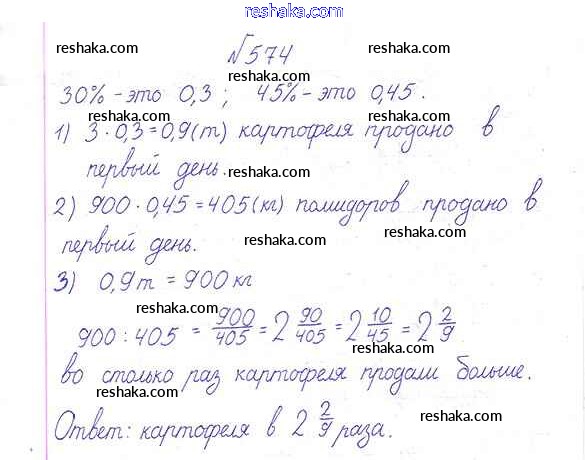 reshaka.com
№574
reshaka.com reshaka.com
30% - это 0,3 ; 45% - это 0,45.
reshaka.com reshaka.com
1) 3 · 0,3 = 0,9 (т) картофеля продано в
первый день.
reshaka.com
2) 900 · 0,45 = 405 (кг) помидоров продано в
reshaka.com reshaka.com
первый день.
reshaka.com
3) 0,9 т = 900 кг
reshaka.com reshaka.com
900 : 405 = 900/405 = 2 90/405 = 2 10/45 = 2 2/9
reshaka.com reshaka.com
во столько раз картофеля продали больше.
reshaka.com
Ответ: картофеля в 2 2/9 раза.
reshaka.com